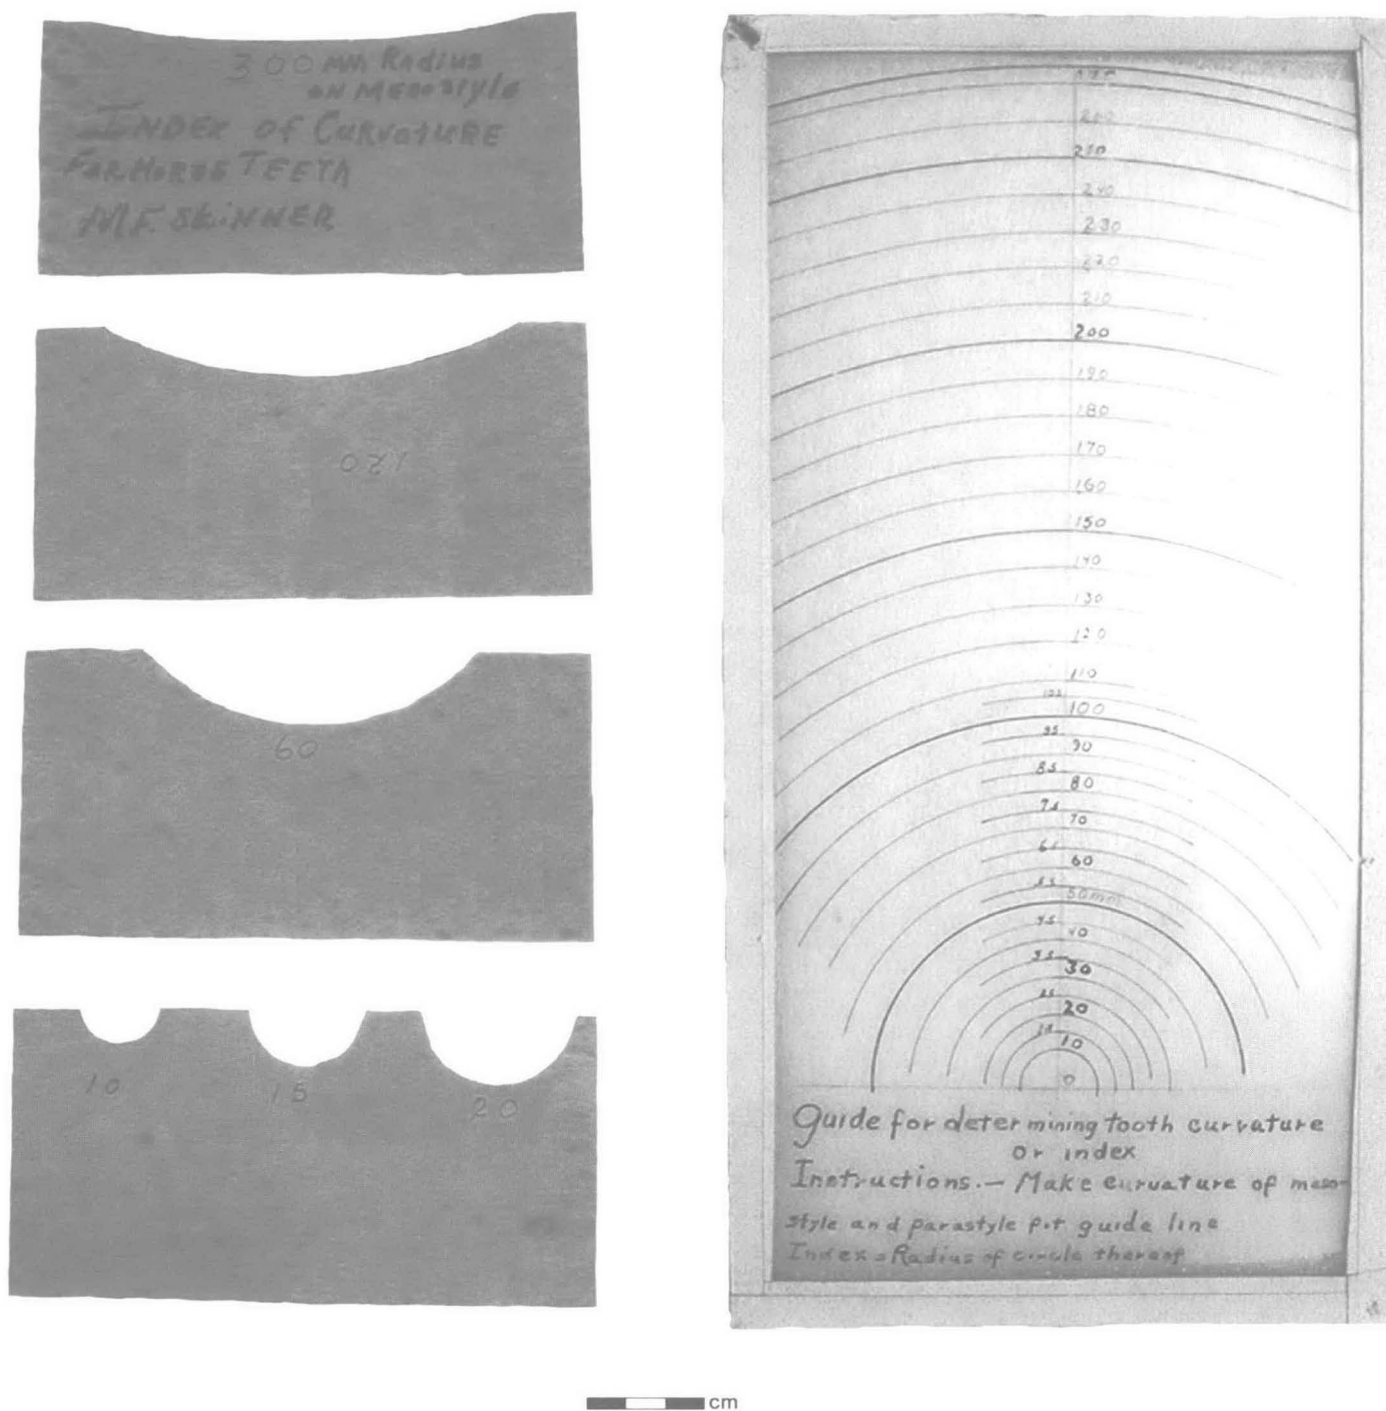 300 MM Radius
ON MESOSTYLE
INDEX OF CURVATURE
FOR HORSE TEETH
M.F. SKINNER
120
60
10 15 20
270
260
250
240
230
220
210
200
190
180
170
160
150
140
130
120
110
105
100
95
90
85
80
75
70
65
60
55
50mm
45
40
35
30
25
20
15
10
0
Guide for determining tooth curvature
or index
Instructions.— Make curvature of meso-
style and parastyle fit guide line
Index = Radius of circle thereof
cm